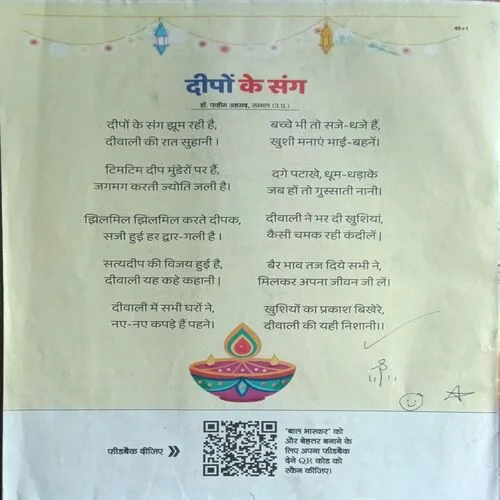 40+1
दीपों के संग
डॉ. फहीम अहमद, सम्भल (उ.प्र.)
दीपों के संग झूम रही है,
दीवाली की रात सुहानी ।
टिमटिम दीप मुंडेरों पर हैं,
जगमग करती ज्योति जली है।
झिलमिल झिलमिल करते दीपक,
सजी हुई हर द्वार-गली है ।
सत्यदीप की विजय हुई है,
दीवाली यह कहे कहानी |
दीवाली में सभी घरों ने,
नए-नए कपड़े हैं पहने।
बच्चे भी तो सजे-धजे हैं,
खुशी मनाएं भाई-बहनें।
दगे पटाखे, धूम-धड़ाके
जब हों तो गुस्साती नानी।
दीवाली ने भर दी खुशियां,
कैसी चमक रही कंदीलें |
बैर भाव तज दिये सभी ने,
मिलकर अपना जीवन जी लें।
खुशियों का प्रकाश बिखेरे,
दीवाली की यही निशानी।।
फीडबैक दीजिए
'बाल भास्कर' को
और बेहतर बनाने के
लिए अपना फीडबैक
देने QR कोड को
स्कैन कीजिए।